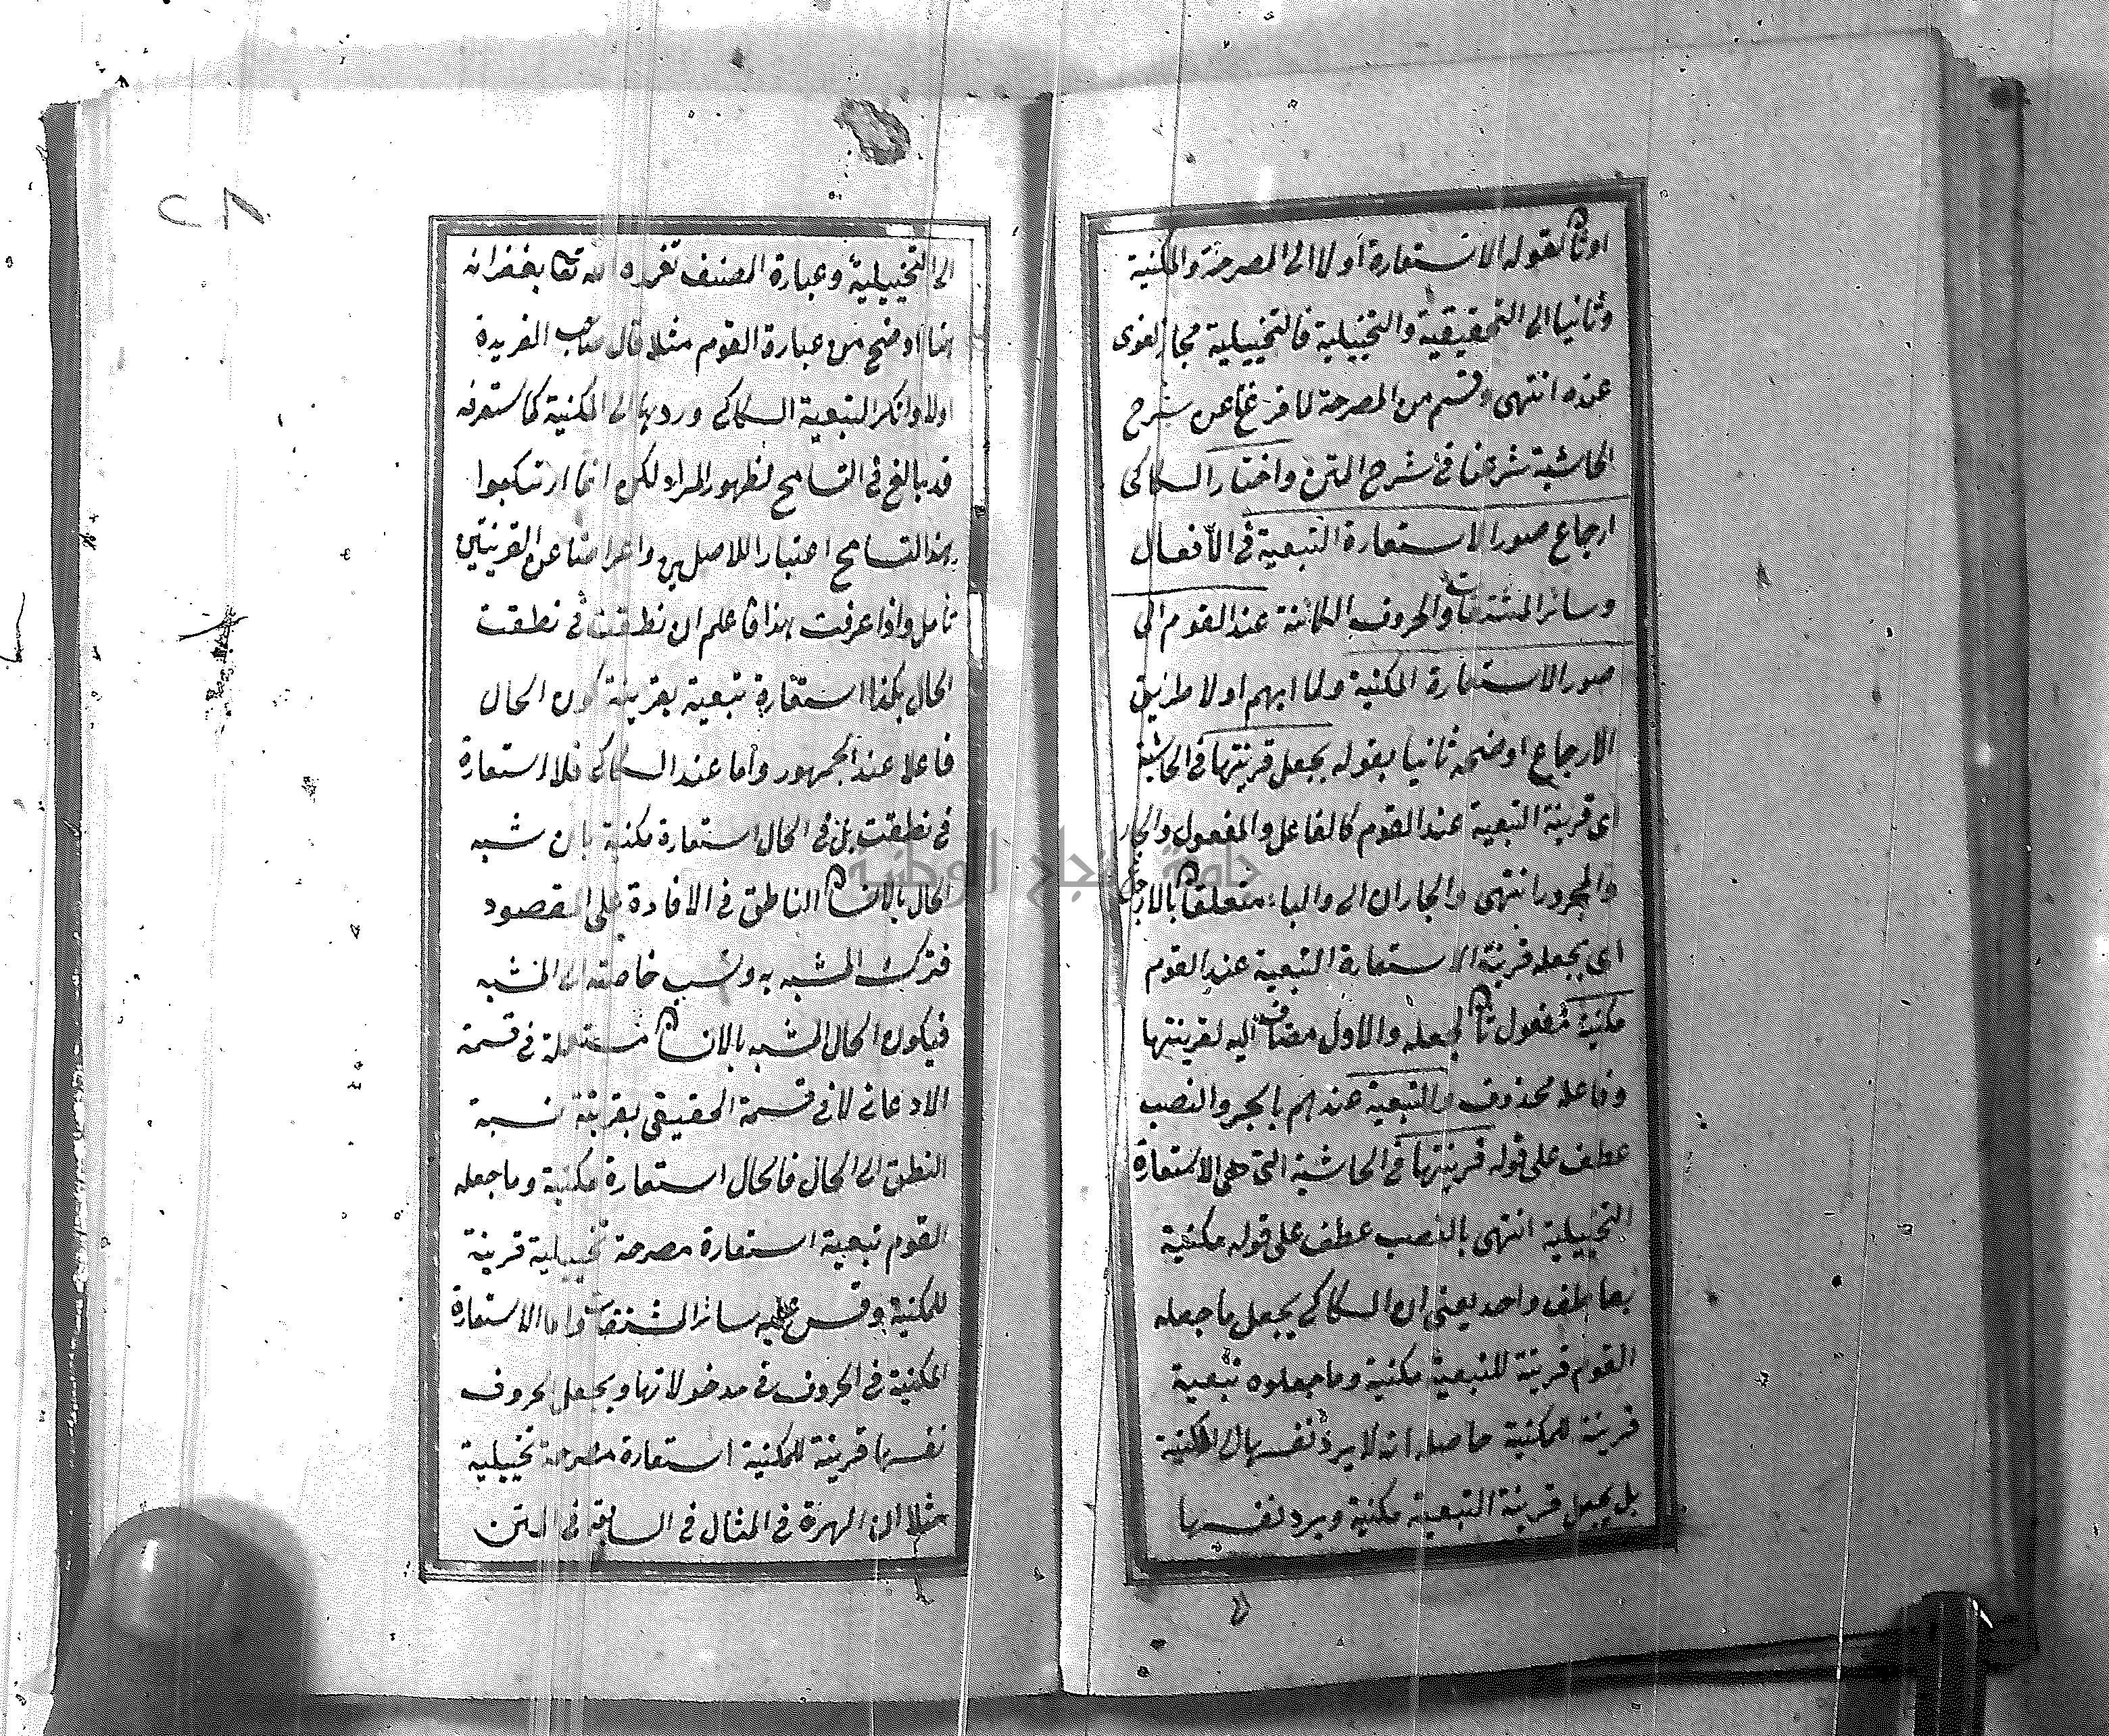 او ثا لقوله الاستعارة أولا الى المصرحة والمكنية
وثانيا الى التحقيقية والتخييلية فالتخييلية مجاز لغوى
عنده انتهى وقسم من المصرحة لما فرغنا عن شرح
الحاشية شرعنا فى شرح المتن واختار السكاكى
ارجاع صور الاستعارة التبعية فى الأفعال
وسائر المشتقات والحروف الكائنة عند القوم الى
صور الاستعارة المكنية ولما ابهم اولا طريق
الارجاع اوضحه ثانيا بقوله بجعل قرينتها فى الحاشية
اى قرينة التبعية عند القوم كالفاعل والمفعول والجار
والمجرور انتهى والجاران الى والباء متعلقا بالارجاع
اى بجعله قرينة الاستعارة التبعية عند القوم
مكنية مفعول ثا لجعله والاول مضاف اليه لقرينتها
وفاعله محذوف والتبعية عندهم بالجر والنصب
عطف على قوله قرينتها فى الحاشية التى هى الاستعارة
التخييلية انتهى بالنصب عطف على قوله مكنية
بعاطف واحد يعنى ان السكاكى يجعل ما جعله
القوم قرينة للتبعية مكنية وما جعلوه تبعية
قرينة للمكنية حاصله انه لا يرد نفسها الى المكنية
بل يجعل قرينة التبعية مكنية ويرد نفسها
٢٨
الى التخييلية وعبارة المصنف تغمده الله تعا بغفرانه
هنا اوضح من عبارة القوم مثلا قال صاحب الفريدة
اولا وانكر التبعية السكاكى وردها الى المكنية كما ستعرفه
قد بالغ فى التسامح لظهور المراد لكن انما ارتكبوا
بهذا التسامح اعتبارا للاصلين واعراضا عن القرينتين
تأمل واذا عرفت هذا فاعلم ان نطقت فى نطقت
الحال بكذا استعارة تبعية بقرينة كون الحال
فاعلا عند الجمهور وأما عند السكاكى فلا استعارة
فى نطقت بل فى الحال استعارة مكنية بان شبه
الحال بالانسا الناطق فى الافادة على المقصود
فترك المشبه به ونسب خاصته الى المشبه
فيكون الحال المشبه بالانسا مستعملة فى قسمة
الادعائى لا فى قسمة الحقيقى بقرينة نسبة
النطق الى الحال فالحال استعارة مكنية وما جعله
القوم تبعية استعارة مصرحة تخييلية قرينة
للمكنية وقس عليه سائر المشتقات واما الاستعارة
المكنية فى الحروف فى مدخولاتها ويجعل الحروف
نفسها قرينة للمكنية استعارة مصرحة تخييلية
مثلا ان الهرة فى المثال فى السابق فى المتن
جامعة النجاح الوطنية